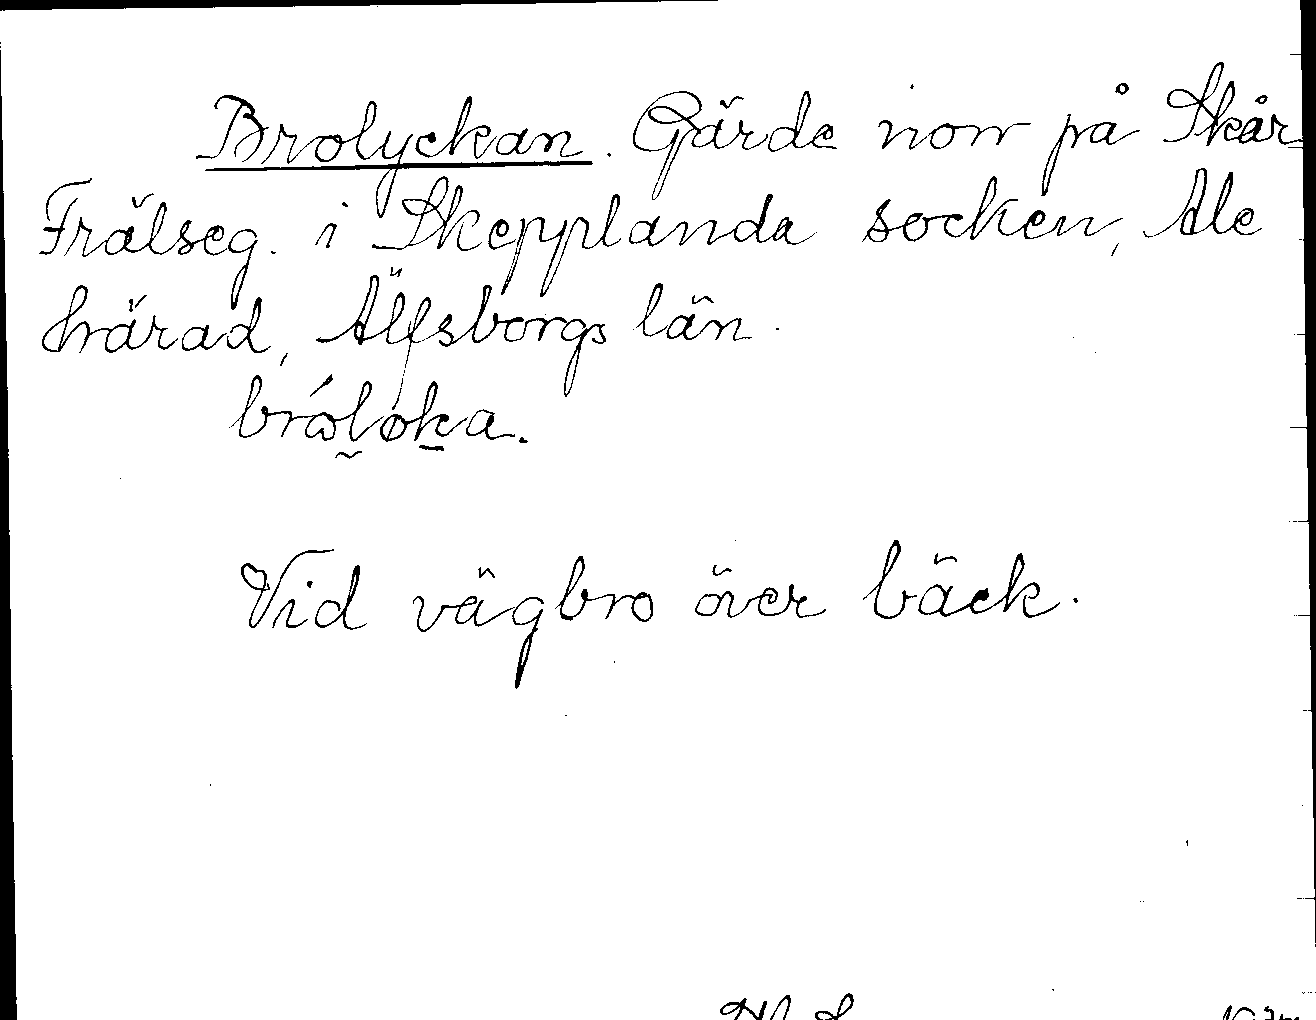 Brolyckan. Gärde norr på Skår
Frälseg. i Skepplanda socken, Ale
härad, Älfsborgs län.
Vid vägbro över bäck.